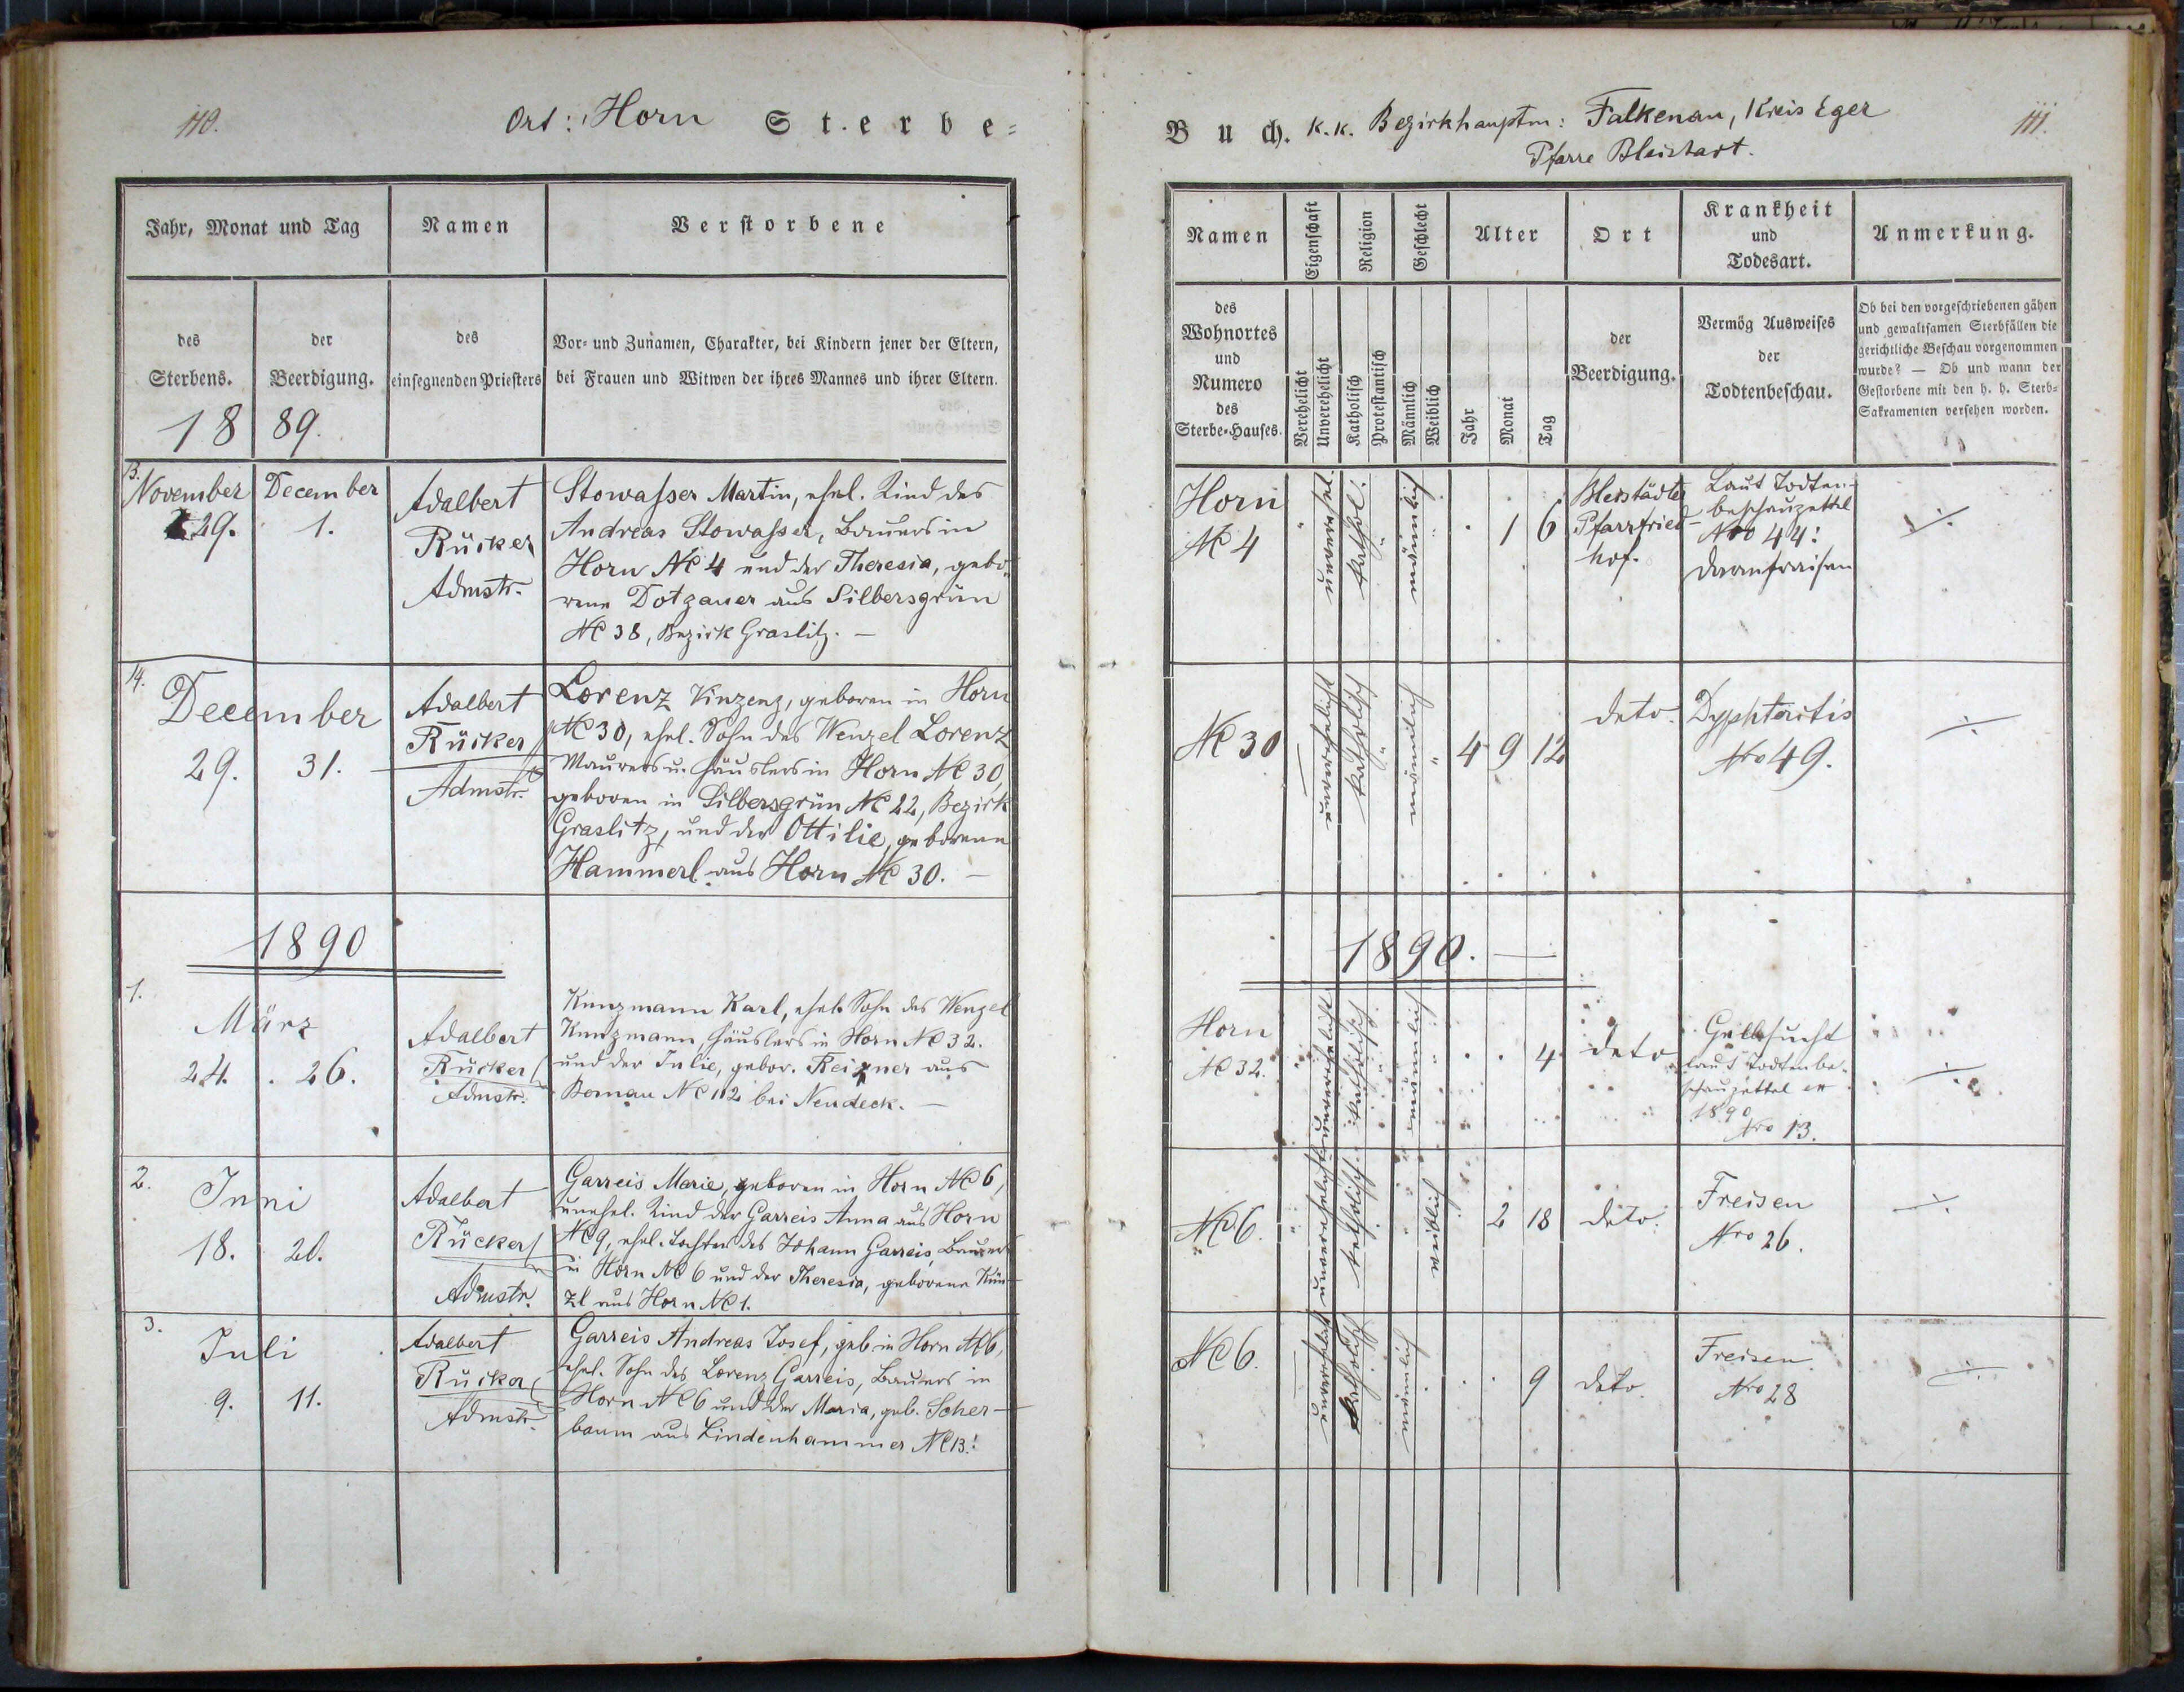 110.
Ort: Horn Sterbe=
Jahr, Monat und Tag
Namen
Verstorbene
des
Sterbens.
der
Beerdigung.
des
einsegnenden Priesters
Vor- und Zunamen, Charakter, bei Kindern jener der Eltern,
bei Frauen und Witwen der ihres Mannes und ihrer Eltern.
18 89.
13.
November
29.
December
1.
Adalbert
Rücker
Admstr.
Stowasser Martin, ehel. Kind des
Andreas Stowasser, Bauers in
Horn NC 4 und der Theresia, gebo-
rene Dotzauer aus Silbersgrün
NC 38, Bezirk Graslitz. —
14.
December
29. 31.
Adalbert
Rücker
Admstr.
Lorenz Vinzenz, geboren in Horn
NC 30, ehel. Sohn des Wenzel Lorenz
Maurers u. Häuslers in Horn NC 30,
geboren in Silbersgrün NC 22, Bezirk
Graslitz, und der Ottilie, geborene
Hammerl aus Horn NC 30. —
1890
1.
März
24. 26.
Adalbert
Rücker
Admstr.
Kunzmann Karl, ehel. Sohn des Wenzel
Kunzmann, Häuslers in Horn NC 32.
und der Julie, gebor. aus
NC 112 bei Neudeck. —
2.
Juni
18. 20.
Adalbert
Rücker
Admstr.
Garreis Marie, geboren in Horn NC 6,
unehel. Kind der Garreis Anna aus Horn
NC 9, ehel. Tochter des Johann Garreis, Bauers
in Horn NC 6 und der Theresia, geborene Kün-
zl aus Horn NC 1.
3.
Juli
9. 11.
Adalbert
Rücker
Admstr.
Garreis Andreas Josef, geb. in Horn NC 6,
ehel. Sohn des Lorenz Garreis, Bauers in
Horn NC 6 und der Maria, geb. Scher-
baum aus Lindenhammer NC 13.
Buch. K. K. Bezirkhauptm: Falkenau, Kreis Eger
Pfarre Bleistadt.
111.
Namen
Eigenschaft
Religion
Geschlecht
Alter
Ort
Krankheit
und
Todesart.
Anmerkung.
des
Wohnortes
und
Numero
des
Sterbe-Hauses.
Verehelicht
Unverehelicht
Katholisch
Protestantisch
Männlich
Weiblich
Jahr
Monat
Tag
der
Beerdigung.
Vermög Ausweises
der
Todtenbeschau.
Ob bei den vorgeschriebenen gähen
und gewaltsamen Sterbfällen die
gerichtliche Beschau vorgenommen
wurde? — Ob und wann der
Gestorbene mit den h. h. Sterb-
Sakramenten versehen worden.
Horn
NC 4
unverehel.
kathol.
männlich
1 6
Bleistädter
Pfarrfried-
hof.
Laut Todten-
beschauzettel
Nro 44:
Darmfraisen
NC 30
unverehelicht
katholisch
männlich
4 9 12
deto.
Dyphteritis
Nro 49.
1890. —
Horn
NC 32.
unverehelicht
katholisch
männlich
4
deto
Gelbsucht
laut Todtenbe-
schauzettel
1890
Nro 13.
NC 6.
unverehelicht
katholisch
weiblich
2 18
deto.
Freisen
Nro 26.
NC 6.
unverehelicht
katholisch
männlich
9
deto.
Freisen
Nro 28